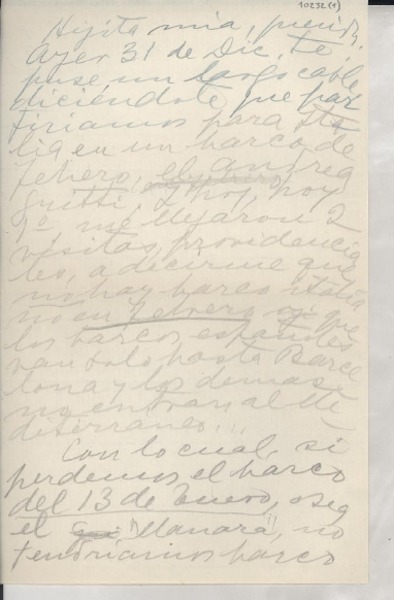 10232(1)
Hijita mía, querida,
Ayer 31 de Dic. te
puse un largo cable
diciéndote que par
tiríamos para Ita
lia en un barco de
febrero, el Andrea
Gritti. Y hoy, hoy
1º me llegaron 2
visitas providencia
les, a decirme que
no hay barco italia
no en febrero y que
los barcos españoles
van solo hasta Barce
lona y los demás
no entran al Me
diterráneo!!!
Con lo cual, si
perdemos el barco
del 13 de Enero, o sea
el "Ugolino Vivaldi", no
tendríamos barco